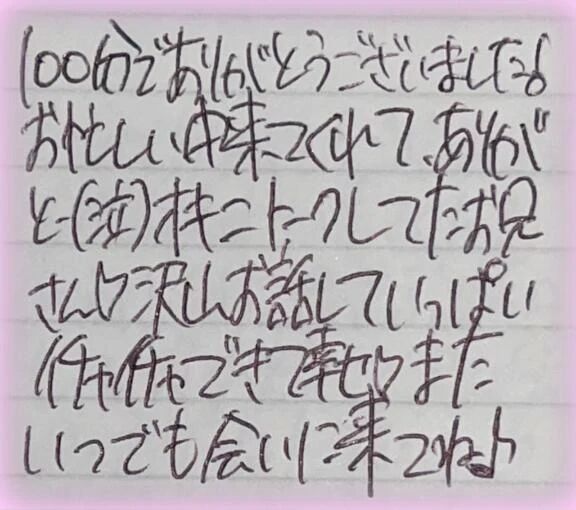 100分でありがとうございました♪
お忙しい中来てくれて、ありが
とー(泣)オキニトークしてたお兄
さん♡沢山お話していっぱい
イチャイチャできて幸せ♡また
いつでも会いに来てね♪